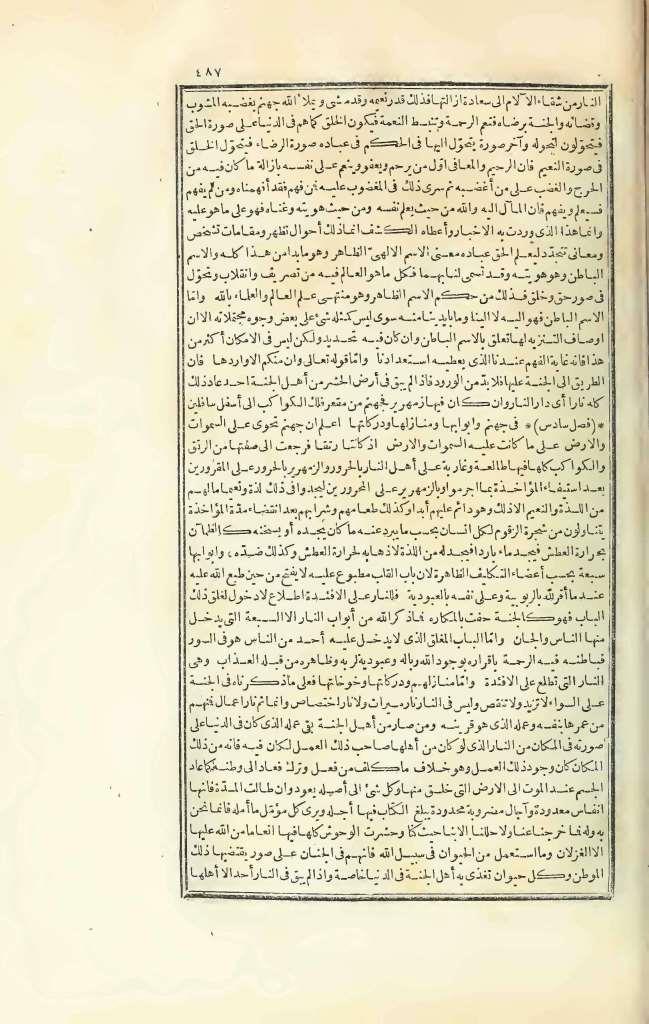 ٤٨٧
النار من شقاء الآلام الى سعادة ازالتها فذلك قدر نعيمه وقد مشى ويملأ الله جهنم بغضبه المشوب
وقضائه والجنة برضاه فتعم الرحمة وتنبسط النعمة فيكون الخلق كما هم فى الدنيا على صورة الحق
فيتحولون لتحوله وآخر صورة يتحول اليها فى الحكم فى عباده صورة الرضاء فيتحول الخلق
فى صورة النعيم فان الرحيم والمعافى اول من يرحم ويعفو وينعم على نفسه بازالة ما كان فيه من
الحرج والغضب على من أغضبه ثم سرى ذلك فى المغضوب عليه فمن فهم فقد أفهمناه ومن لم يفهم
فسيعلم ويفهم فان المآل اليه والله من حيث يعلم نفسه ومن حيث هويته وغناه فهو على ما هو عليه
وانما هذا الذى وردت به الاخبار وأعطاه الكشف انما ذلك أحوال تظهر ومقامات تشخص
ومعانى تتجدد ليعلم الحق عباده معنى الاسم الالهى الظاهر وهو ما بدا من هذا كله والاسم
الباطن وهو هويته وقد تسمى لنا بهما فكل ما هو العالم فيه من تصريف وانقلاب وتحول
فى صور حق وخلق فذلك من حكم الاسم الظاهر وهو منتهى علم العالم والعلماء بالله واما
الاسم الباطن فهو اليه لا الينا وما بايدينا منه سوى ليس كمثله شئ على بعض وجوه محتملاته الا ان
اوصاف التنزيه لها تعلق بالاسم الباطن وان كان فيه تحديد ولكن ليس فى الامكان أكثر من
هذا فانه غاية الفهم عندنا الذى يعطيه استعدادنا واما قوله تعالى وان منكم الا واردها فان
الطريق الى الجنة عليها فلا بد من الورود فاذا لم يبق فى أرض الحشر من أهل الجنة احد عاد ذلك
كله نارا أى دار النار وان كان فيها زمهرير فجهنم من مقعر فلك الكواكب الى أسفل سافلين
* (فصل سادس) * فى جهنم وابوابها ومنازلها ودركاتها اعلم ان جهنم تحوى على السموات
والارض على ما كانت عليه السموات والارض اذ كانتا رتقا فرجعت الى صفتها من الرتق
والكواكب كلها فيها طالعة وغاربة على أهل النار بالحرور والزمهرير بالحرور على المقرورين
بعد استيفاء المؤاخذة بما اجرموا وبالزمهرير على المحرورين ليجدوا فى ذلك لذة ونعيما ما لهم
من اللذة والنعيم الا ذلك وهو دائم عليهم أبدا وكذلك طعامهم وشرابهم بعد انقضاء مدة المؤاخذة
يتناولون من شجرة الزقوم لكل انسان بحسب ما يبرد عنه ما كان يجده أو يسخنه كالظمآن
بحرارة العطش فيجد ماء باردا فيجد له من اللذة لاذهابه لحرارة العطش وكذلك ضده، وابوابها
سبعة بحسب أعضاء التكليف الظاهرة لان باب القلب مطبوع عليه لا يفتح من حين طبع الله عليه
عند ما أقر لله بالربوبية وعلى نفسه بالعبودية فللنار على الافئدة اطلاع لا دخول لغلق ذلك
الباب فهو كالجنة حفت بالمكاره فما ذكر الله من أبواب النار الا السبعة التى يدخل
منها الناس والجان واما الباب المغلق الذى لا يدخل عليه أحد من الناس هو فى السور
فباطنه فيه الرحمة باقراره بوجود الله رباله وعبوديته لربه وظاهره من قبله العذاب وهى
النار التى تطلع على الافئدة واما منازلهم ودركاتها وخوخاتها فعلى ما ذكرناه فى الجنة
على السواء لا تزيد ولا تنقص وليس فى النار نار ميراث ولا نار اختصاص وانما ثم نار اعمال فمنهم
من عمرها بنفسه وعمله الذى هو قرينه ومن صار من أهل الجنة بقى عمله الذى كان فى الدنيا على
صورته فى المكان من النار الذى لو كان من أهلها صاحب ذلك العمل لكان فيه فانه من ذلك
المكان كان وجود ذلك العمل وهو خلاف ما كلف من فعل وترك فعاد الى وطنه كما عاد
الجسم عند الموت الى الارض التى خلق منها وكل شئ الى أصله يعود وان طالت المدة فانها
انفاس معدودة وآجال مضروبة محدودة يبلغ الكتاب فيها أجله ويرى كل مؤمل ما أمله فانما نحن
به وله فما خرجنا عنا ولا حللنا الا بنا حيث كنا وحشرت الوحوش كلها فيها انعاما من الله عليها
الا الغزلان وما استعمل من الحيوان فى سبيل الله فانهم فى الجنان على صور يقتضيها ذلك
الموطن وكل حيوان تغذى به أهل الجنة فى الدنيا خاصة واذا لم يبق فى النار أحد الا أهلها